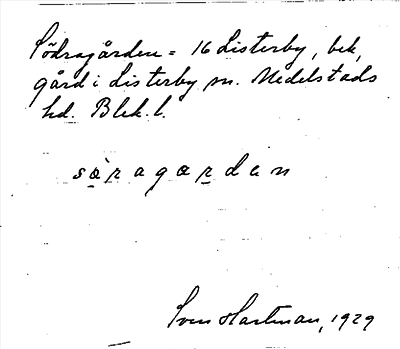 Södragården = 16 Listerby, bek,
gård i Listerby sn. Medelstads
hd. Blek. l.
sœ̀ragœrdan
Sven Hartman, 1929